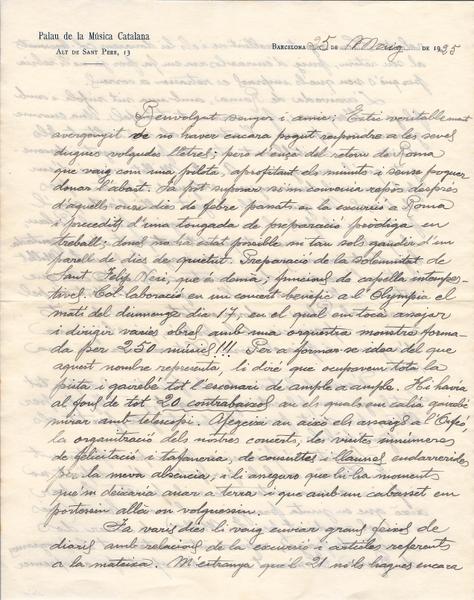 Palau de la Música Catalana
Alt de Sant Pere, 13
Barcelona 25 de Maig de 1925
Benvolgut senyor i amic: Estic veritablement
avergonyit de no haver encara pogut respondre a les seves
dugues volgudes lletres; però d'ençà del retorn de Roma
que vaig com una pilota, aprofitant els minuts i sense poguer
donar l'abast. Ja pot suposar si'm convenia repòs després
d'aquells onze dies de febre passats en la excursió a Roma
i precedits d'una tongada de preparació pròdiga en
treball; doncs no ha estat possible ni tan sols gaudir d'un
parell de dies de quietut. Preparació de la solemnitat de
Sant Felip Neri, que és demà, funcions de capella intempes-
tives. Col·laboració en un concert benèfic a l'Olympia el
matí del diumenge dia 17, en el qual em tocà assajar
i dirigir varies obres amb una orquestra monstre forma-
da per 250 músics!!! Per a formar-se idea del que
aquest nombre representa, li diré que ocupavem tota la
pista i gairebé tot l'escenari de ample a ample. Hi havia
al fons de tot 20 contrabaixos an els quals em calia
mirar amb telescopi. Afegeixi an això els assaigs a l'Orfeó,
la organització dels nostres concerts, les visites innumeres
de felicitació i tafaneria, de consultes i llaunes endarrerides
per la meva absencia, i li asseguro que hi ha moments
que'm deixaria anar a terra i que amb un cabasset em
portessin allà on volguessin.
Ja varis dies li vaig enviar grans feixos de
diaris amb relacions de la excursió i articles referents
a la mateixa. M'estranya que'l 21 no'ls hagues encara